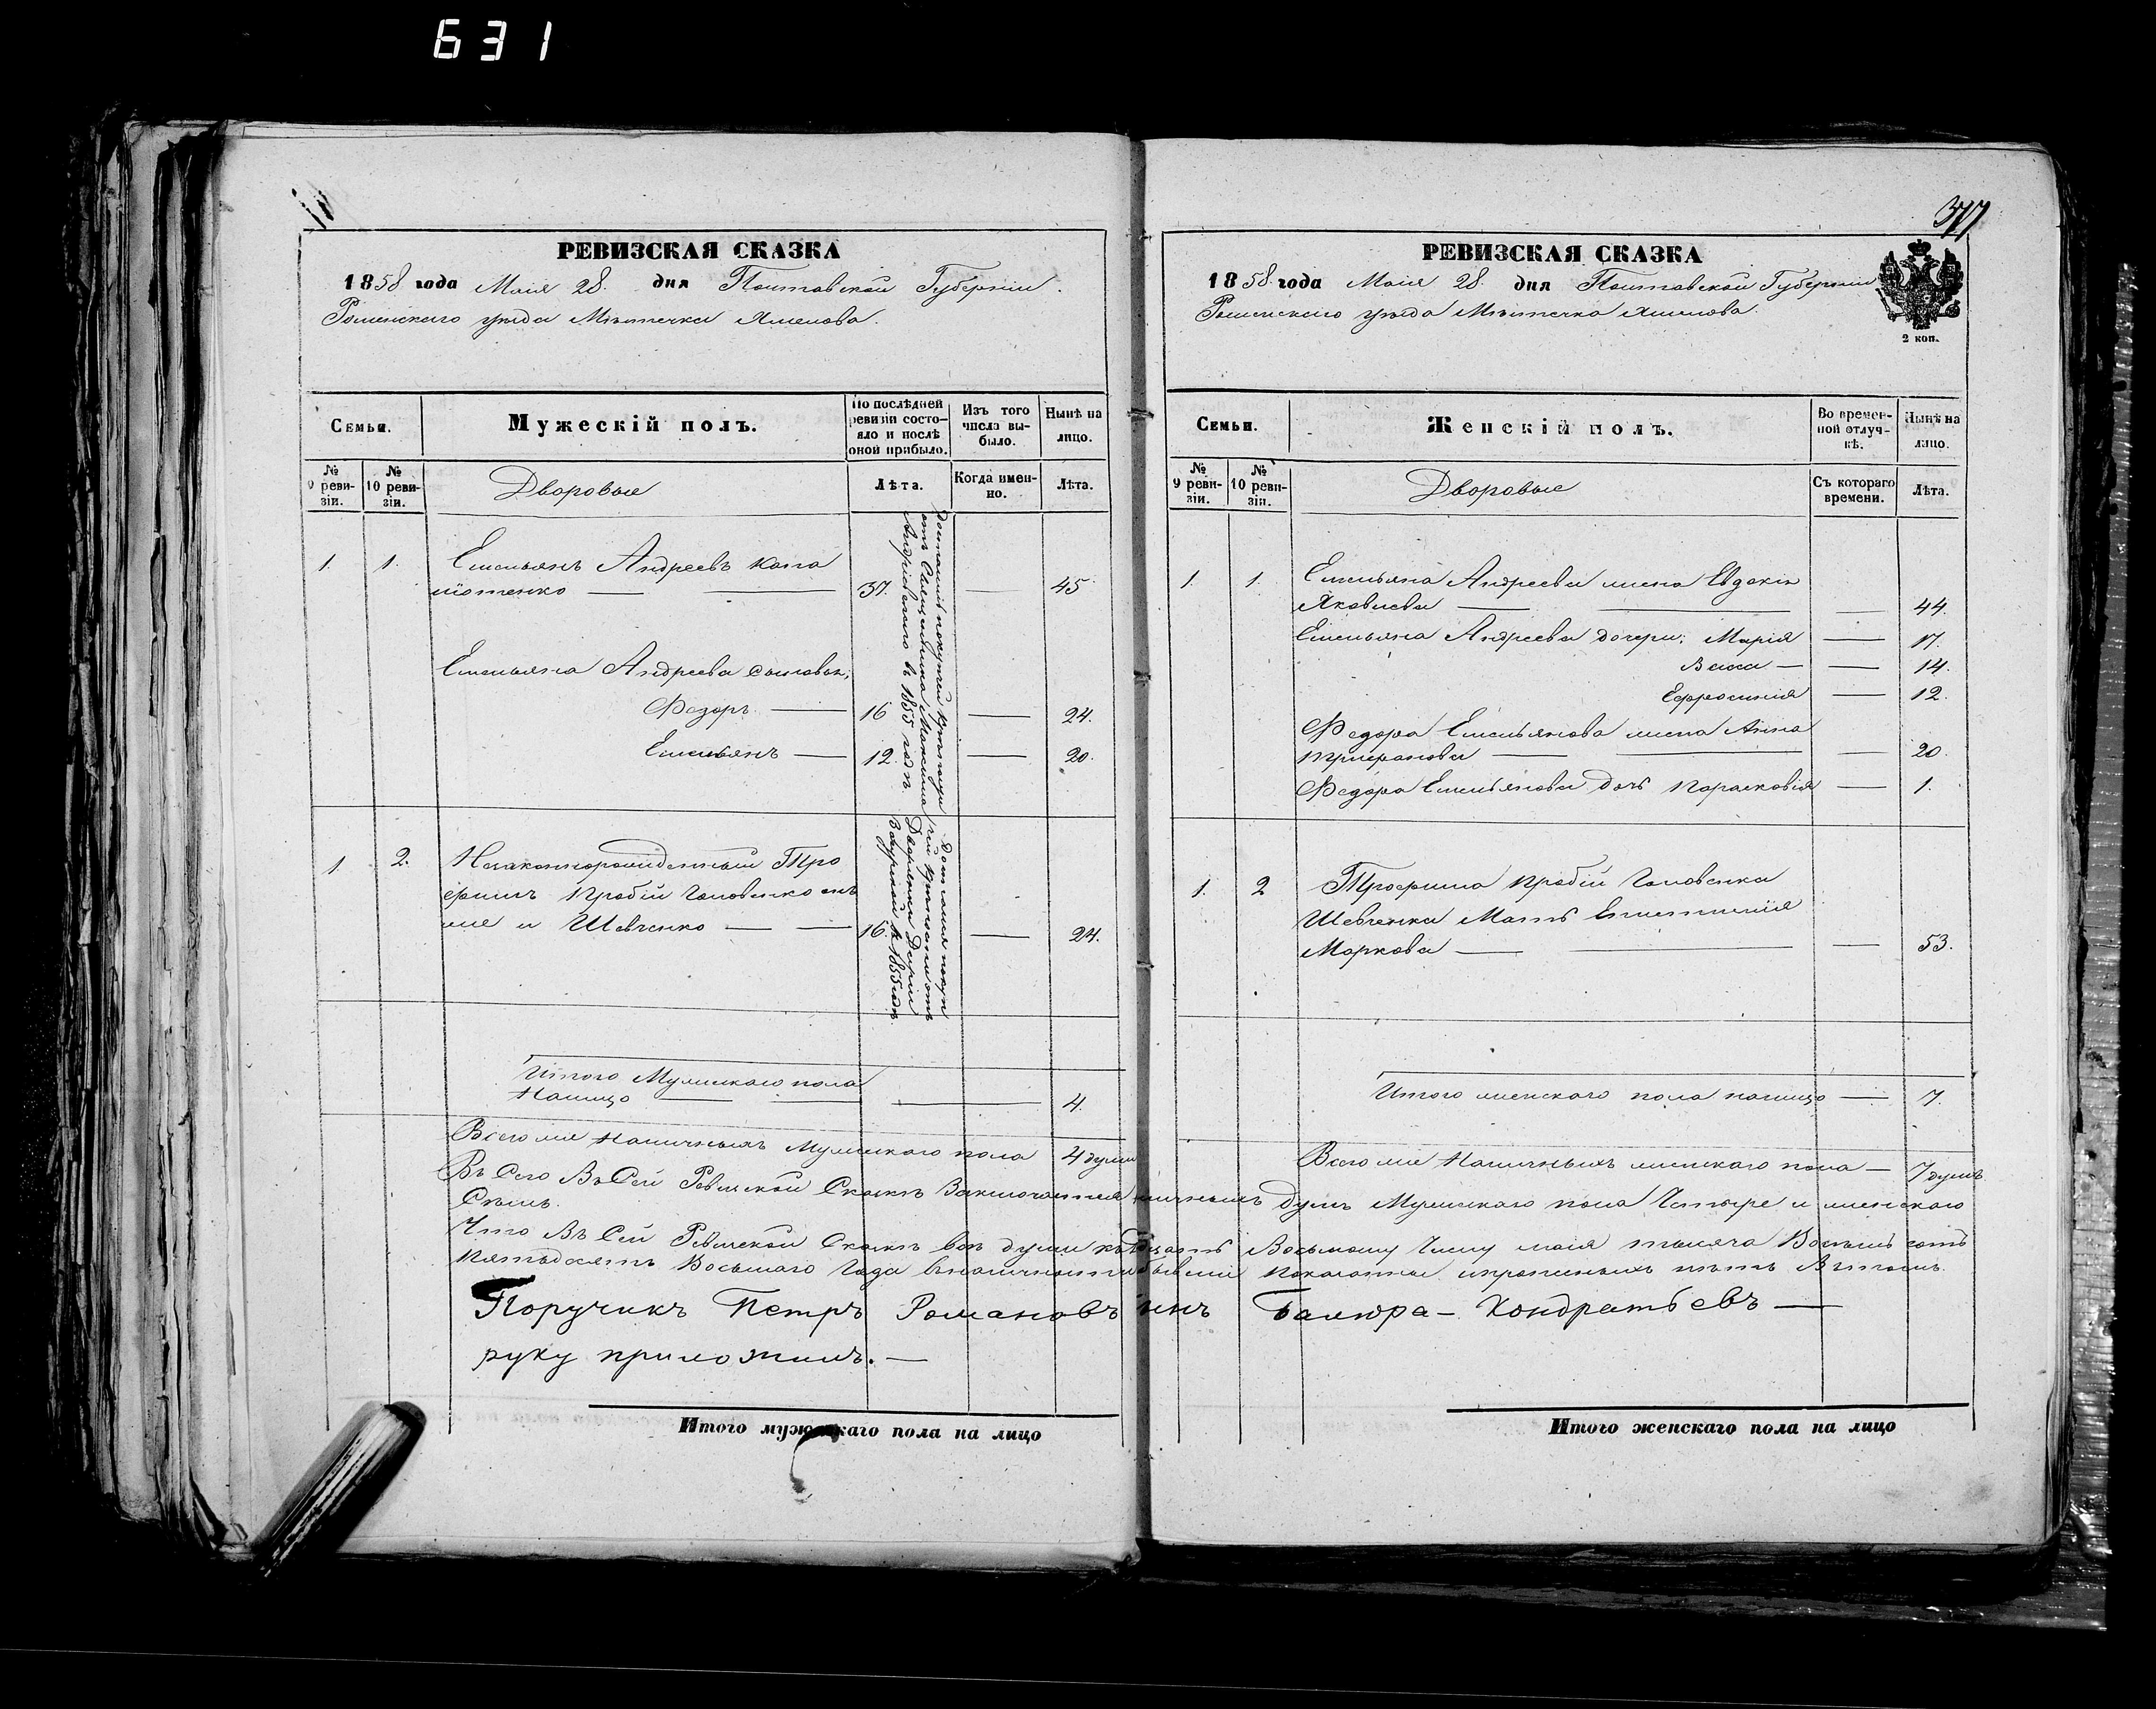 631
РЕВИЗСКАЯ СКАЗКА
1858 года Маія 28. дня Полтавской Губерніи.
Роменскаго уѣзда Мѣстечка Хмелова.
Семьи.
Мужескій полъ.
По послѣдней ревизіи состо-
яло и послѣ
оной прибыло.
Изъ того
числа вы-
было.
Нынѣ на
лицо.
№
9 реви-
зіи.
№
10 реви-
зіи.
Дворовые
Лѣта.
Когда имен-
но.
Лѣта.
1. 1. Емельянъ Андреевъ
37. 45
Емельяна Андреева сыновья,
Федоръ 16 24.
Емельянъ 12. 20.
Достались покупкой
Максима
въ 1855 годѣ
1. 2. Незаконнорожденный Тро
фимъ Головенко онъ
же и Шевченко 16. 24.
Дворянки Даріи
въ 1855 годѣ
Итого Мужескаго пола
Налицо 4.
Всего же Наличныхъ Мужескаго пола 4 души
РЕВИЗСКАЯ СКАЗКА
1858 года Маія 28. дня Полтавской Губерніи
Роменскаго уѣзда Мѣстечка Хмелова.
2 коп.
Семьи.
Женскій полъ.
Во времен-
ной отлуч-
кѣ.
Нынѣ на
лицо.
№
9 реви-
зіи.
№
10 реви-
зіи.
Дворовые
Съ котораго
времени.
Лѣта.
1. 1. Емельяна Андреева жена Евдокія
Яковлева 44.
Емельяна Андреева дочери: Марія 17.
Васса 14.
Ефросинія 12.
Федора Емельянова жена Анна
Трифонова 20.
Федора Емельянова дочь Парасковія 1.
1. 2 Трофима Головенка
Шевченка Мать
Маркова 53.
Итого женскаго пола налицо 7.
Всего же Наличныхъ женскаго пола 7 душъ
Въ Сей Ревизской Сказкѣ Заключается наличныхъ душъ Мужескаго пола Четыре и женскаго
Семь.
Что Въ Сей Ревизской Сказкѣ всѣ души Восьмому Числу маія тысяча Восемь сотъ
Пятьдесятъ Восьмаго Года
Поручикъ Петръ Романовъ сынъ Кондратьевъ
руку приложилъ.
Итого мужескаго пола на лицо
Итого женскаго пола на лицо